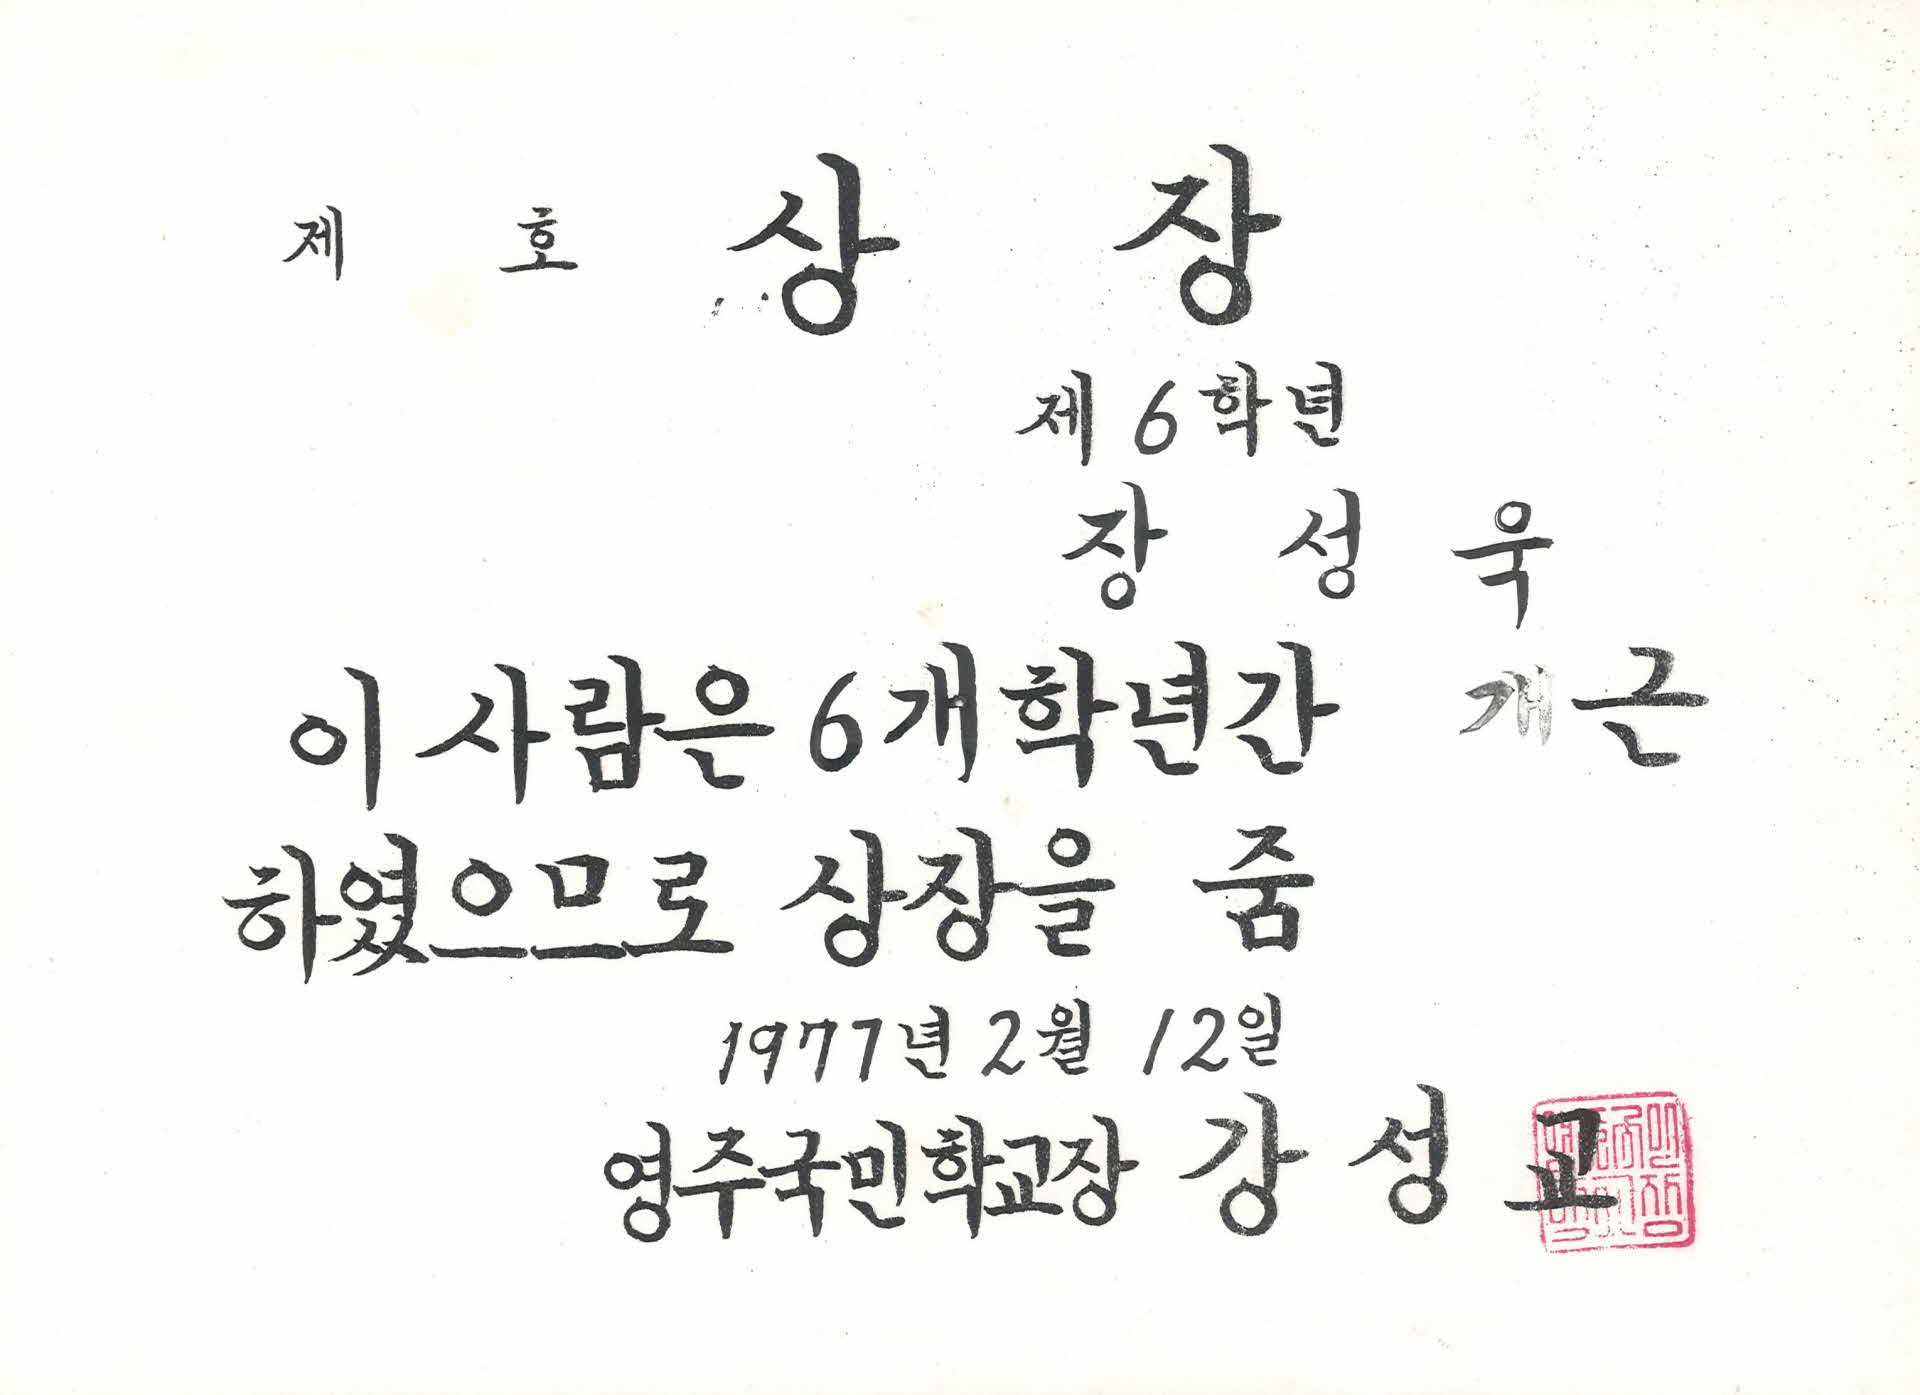 제 호 상 장
제 6 학년
장 성 욱
이 사람은 6개 학년간 개근
하였으므로 상장을 줌
1977년 2월 12일
영주국민학교장 강 성 교